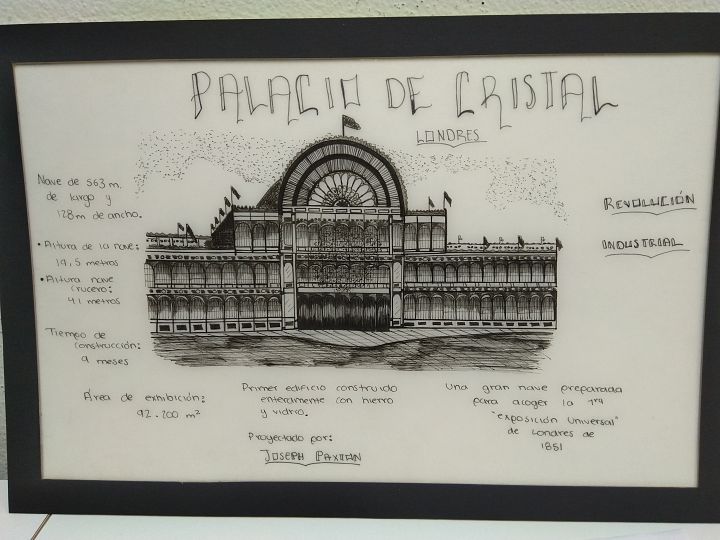 PALACIO DE CRISTAL
LONDRES
Nave de 563 m.
de largo y
128 m de ancho.
• Altura de la nave:
19,5 metros
• Altura nave
crucero:
41 metros
Tiempo de
construcción:
9 meses
REVOLUCIÓN
INDUSTRIAL
Área de exhibición:
92.200 m²
Primer edificio construido
enteramente con hierro
y vidrio.
Proyectado por:
JOSEPH PAXTAN
Una gran nave preparada
para acoger la 1ra
"exposición Universal"
de Londres de
1851